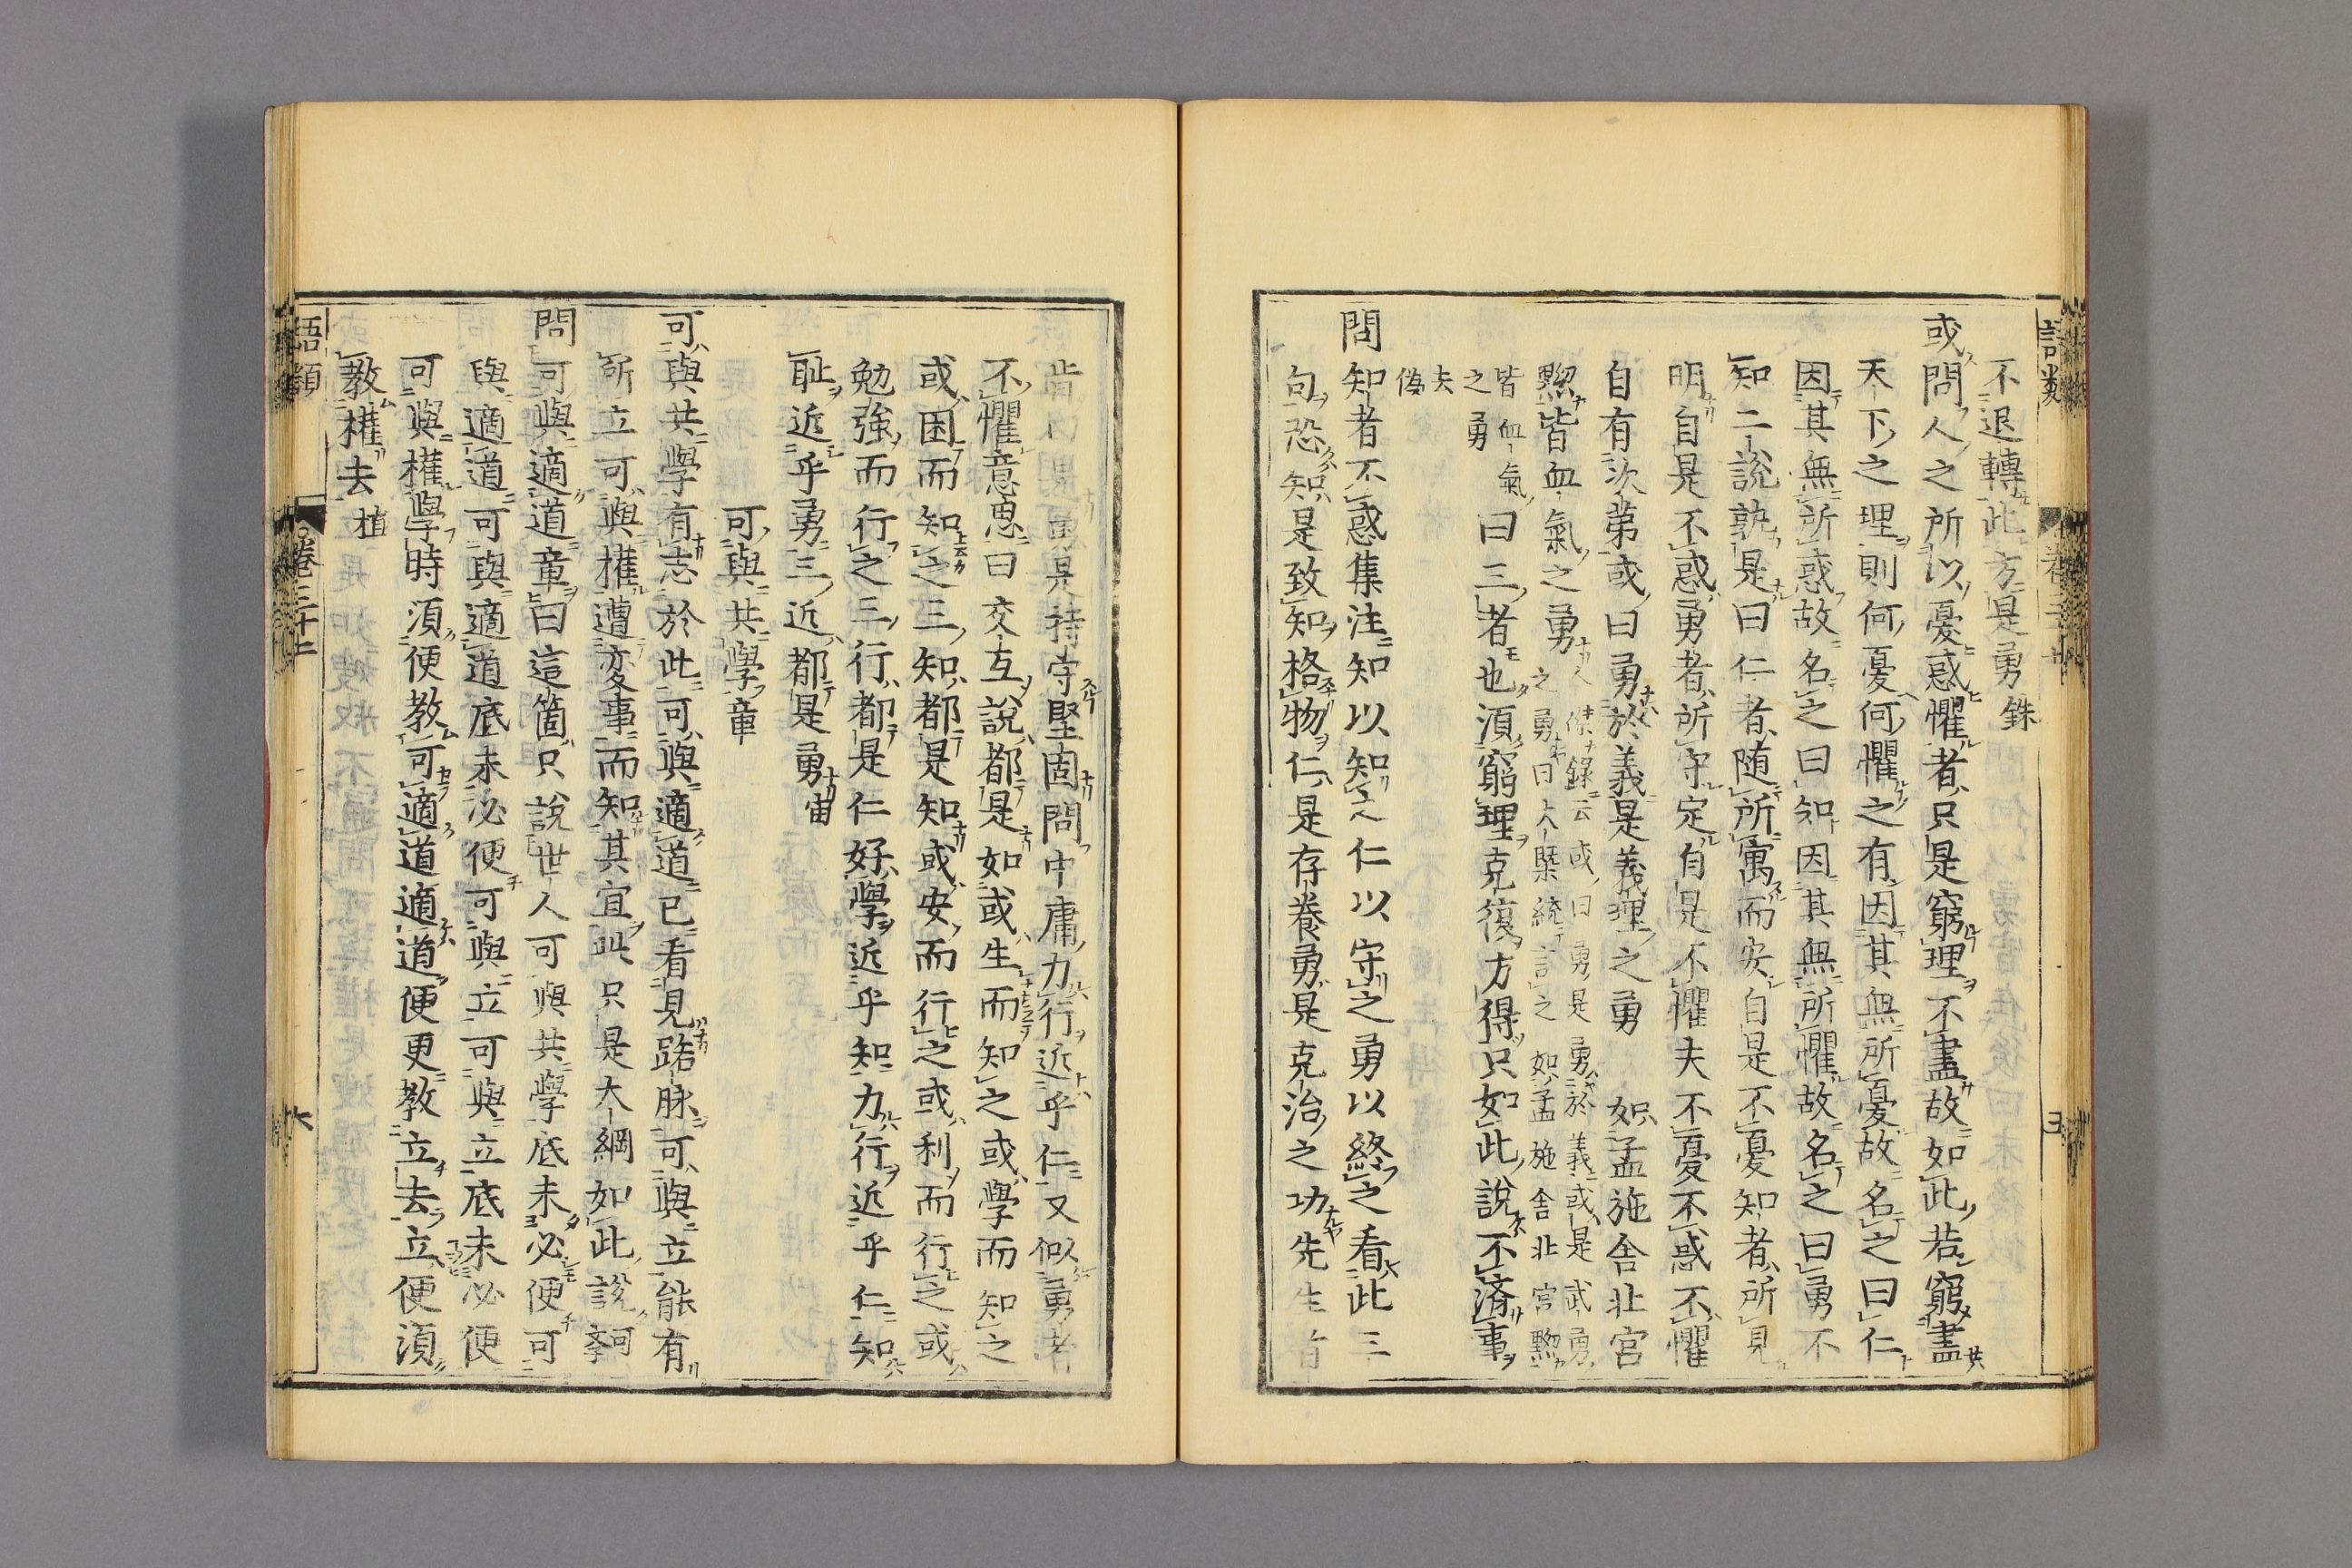 不退轉此方是勇銖
或問人之所以憂惑懼者只是窮理不盡故如此若窮盡
天下之理則何憂何懼之有因其無所憂故名之曰仁
因其無所惑故名之曰知因其無所懼故名之曰勇不
知二說孰是曰仁者随所寓而安自是不憂知者所見
明自是不惑勇者所守定自是不懼夫不憂不惑不懼
自有次第或曰勇於義是義理之勇如孟施舍北宮
黝皆血氣之勇人傑錄云或曰勇是勇於義或是武勇
之勇曰大槩統言之如孟施舍北宮黝
皆血氣
之勇
曰三者也須窮理克復方得只如此說不済事
去
偽
問知者不惑集注知以知之仁以守之勇以終之看此三
句恐知是致知格物仁是存養勇是克治之功先生首
肯曰是勇是持守堅固問中庸力行近乎仁又似勇者
不懼意思曰交互說都是如或生而知之或學而知之
或困而知之三知都是知或安而行之或利而行之或
勉強而行之三行都是仁好學近乎知力行近乎仁知
耻近乎勇三近都是勇宙
可與共學章
可與共學有志於此可與適道已看見路脉可與立能有
所立可與權遭変事而知其宜此只是大綱如此說可
學
問可與適道章曰這箇只說世人可與共學底未必便可
與適道可與適道底未必便可與立可與立底未必便
可與權學時須便教可適道適道便更教立去立便須
教權去植
語類
卷三十七
六